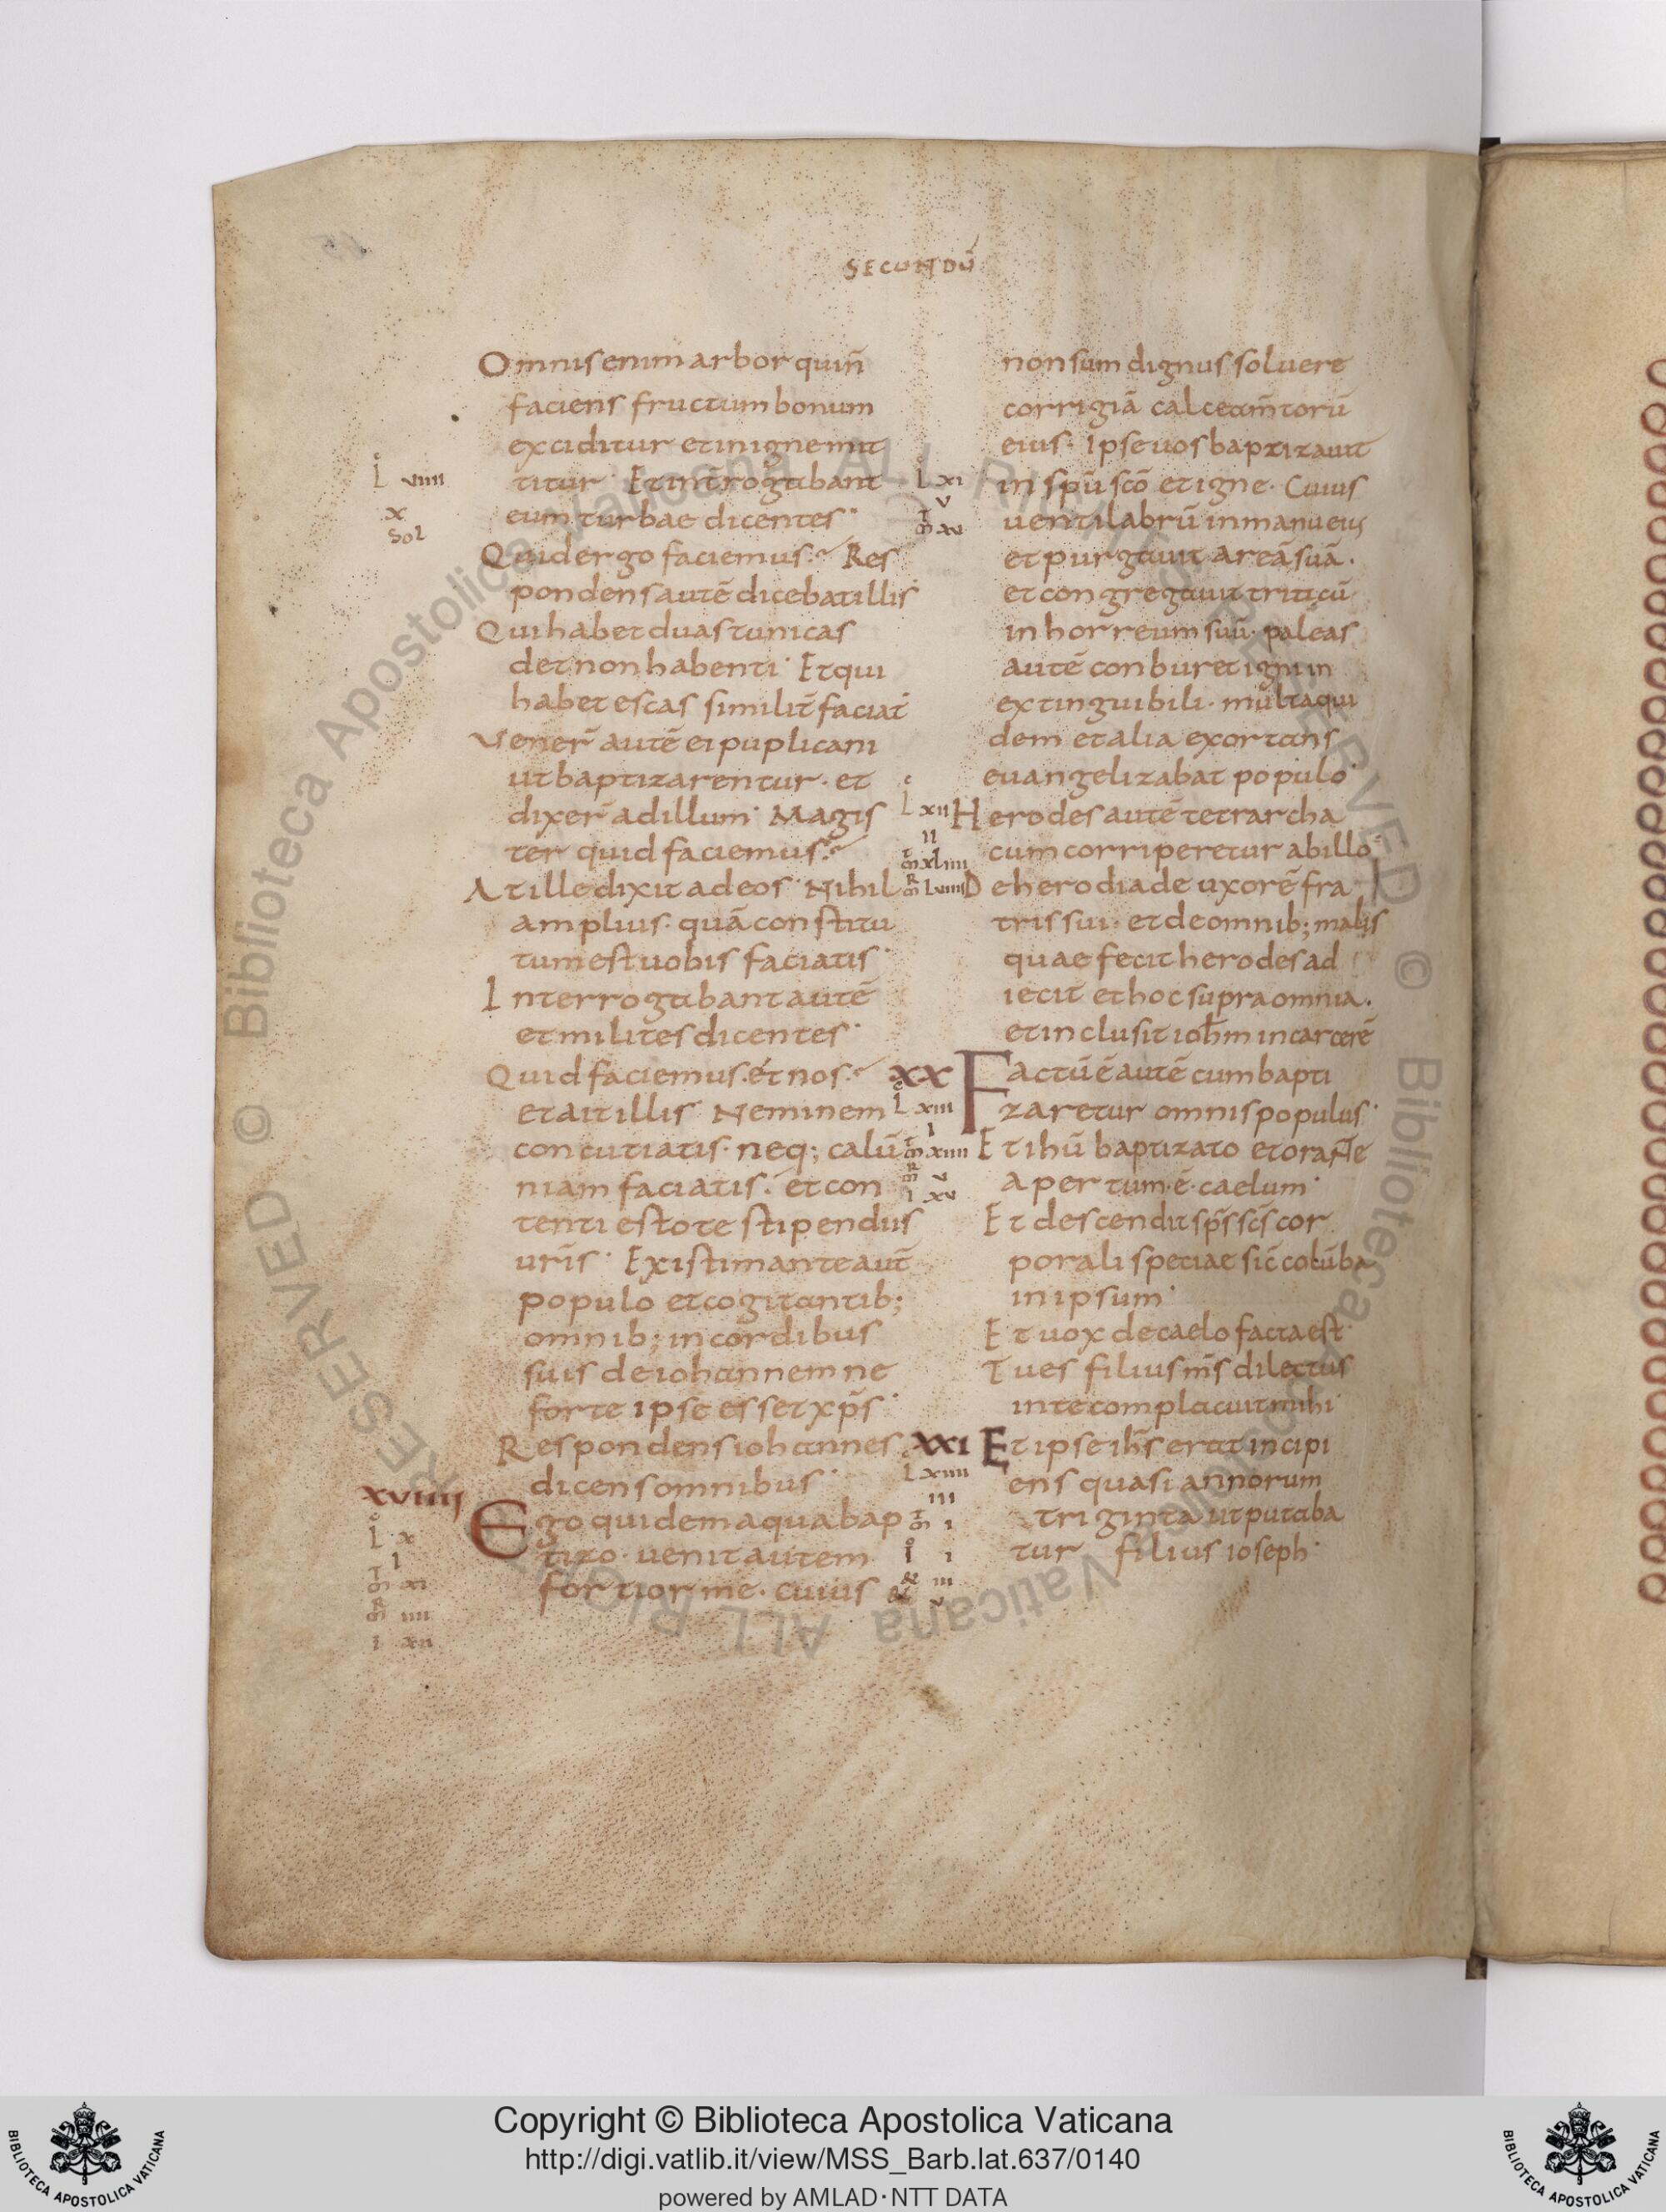 SECUNDŪ
Omnis enim arbor qui n̄
faciens fructum bonum
exciditur et in igne mit
titur· Et int̄rogabant
eum turbae dicentes·
Quid ergo faciemus· Res
pondens autē dicebat illis·
Qui habet duas tunicas
det non habenti· Et qui
habet escas similit̄ faciat·
Vener̄ autē ei puplicani
ut baptizarentur· et
dixer̄ ad illum· Magis
ter quid faciemus·
At ille dixit ad eos· Nihil
amplius· quā constitu
tum est uobis faciatis·
Interrogabant autē
et milites dicentes·
Quid faciemus· et nos·
et ait illis· Neminem
concutiatis· neq; calū
niam faciatis· et con
tenti estote stipendiis
uris̄· Existimante aut̄
populo et cogitantib;
omnib; in cordibus
suis de iohannem ne
forte ipse esset xp̄s·
Respondens iohannes
dicens omnibus·
Ego quidem aqua bap
tizo· uenit autem
fortior me· cuius
non sum dignus soluere
corrigiā calceam̄torū
eius· Ipse uos baptizauit
in sp̄u sc̄o et igne· Cuius
uentilabrū in manu eius
et purgauit areā suā·
et congregauit triticū
in horreum suū· paleas
autē conburet igni in
extinguibili· multa qui
dem et alia exortans
euangelizabat populo·
Herodes autē tetrarcha
cum corriperetur ab illo·
De herodiade uxorē fra
tris sui· et de omnib; malis
quae fecit herodes ad
iecit et hoc supra omnia·
et inclusit ioh̄m in carcerē
XX
Factū ē autē cum bapti
zaretur omnis populus·
Et ih̄u baptizato et orante
apertum· ē· caelum·
Et descendit sp̄s sc̄s cor
porali speciae sic̄ colūba
in ipsum·
Et uox de caelo facta est·
Tu es filius m̄s dilectus
in te complacuit mihi·
XXI
Et ipse ih̄s erat incipi
ens quasi annorum
triginta ut putaba
tur filius ioseph·
L viiii
x
Sol
XVIIII
L x
I
xi
iiii
I xii
L xi
v
L xii
II
xliiii
L xiii
I
xiiii
v
I xv
L xiiii
III
I
I I
III
v
© Biblioteca Apostolica Vaticana ALL RIGHTS RESERVED
Copyright © Biblioteca Apostolica Vaticana
http://digi.vatlib.it/view/MSS_Barb.lat.637/0140
powered by AMLAD·NTT DATA
BIBLIOTECA APOSTOLICA VATICANA
BIBLIOTECA APOSTOLICA VATICANA